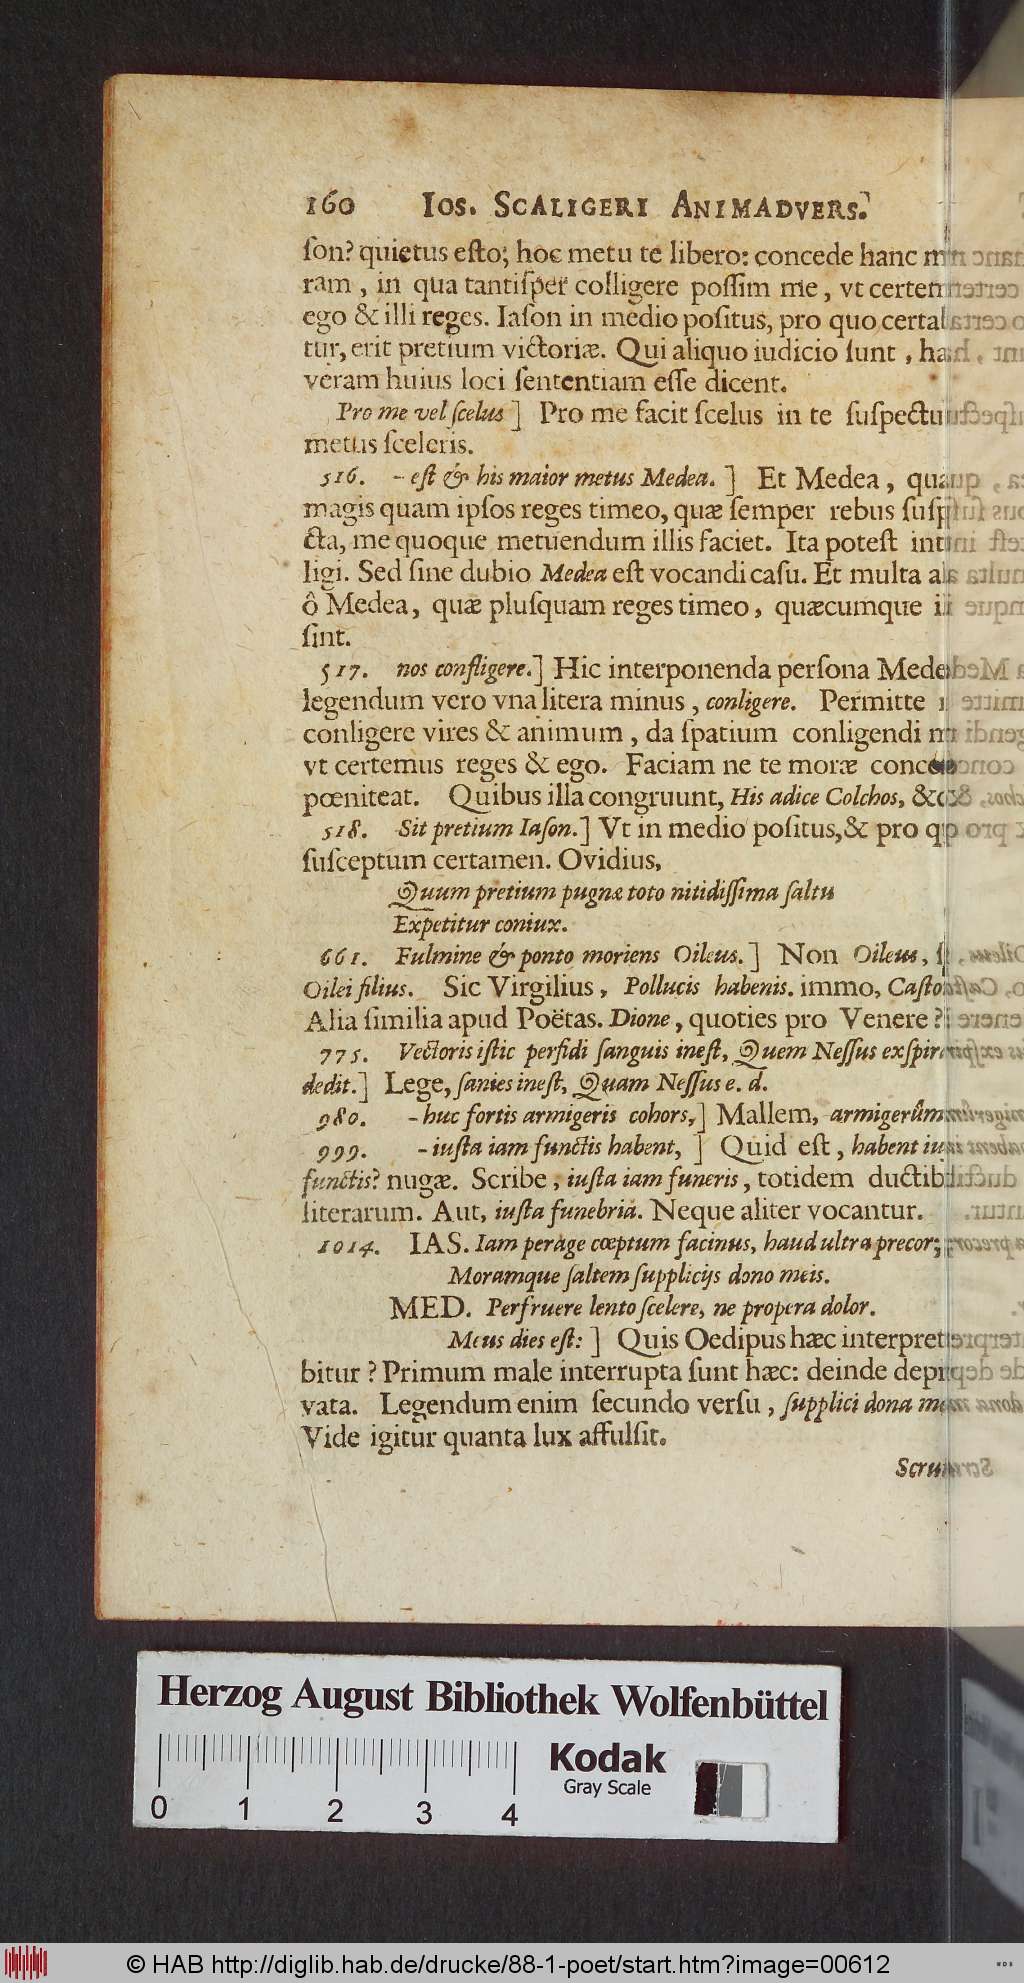 160 IOS. SCALIGERI ANIMADVERS.
ſon? quietus eſto; hoc metu te libero: concede hanc
ram, in qua tantiſper colligere poſſim me, vt
ego & illi reges. Iaſon in medio poſitus, pro quo
tur, erit pretium victoriæ. Qui aliquo iudicio ſunt,
veram huius loci ſententiam eſſe dicent.
Pro me vel ſcelus ] Pro me facit ſcelus in te
metus ſceleris.
516. – eſt & his maior metus Medea. ] Et Medea,
magis quam ipſos reges timeo, quæ ſemper rebus
cta, me quoque metuendum illis faciet. Ita poteſt
ligi. Sed ſine dubio Medea eſt vocandi caſu. Et multa
ô Medea, quæ pluſquam reges timeo, quæcumque
ſint.
517. nos confligere.] Hic interponenda perſona
legendum vero vna litera minus, conligere. Permitte
conligere vires & animum, da ſpatium conligendi
vt certemus reges & ego. Faciam ne te moræ
pœniteat. Quibus illa congruunt, His adice Colchos, &c
518. Sit pretium Iaſon.] Vt in medio poſitus, & pro
ſuſceptum certamen. Ovidius,
Quum pretium pugnæ toto nitidiſſima ſaltu
Expetitur coniux.
661. Fulmine & ponto moriens Oileus.] Non Oileus,
Oilei filius. Sic Virgilius, Pollucis habenis. immo,
Alia ſimilia apud Poëtas. Dione, quoties pro Venere?
775. Vectoris iſtic perfidi ſanguis ineſt, Quem Neſſus
dedit.] Lege, ſanies ineſt, Quam Neſſus e. d.
980. – huc fortis armigeris cohors,] Mallem, armigerûm
999. – iuſta iam functis habent, ] Quid eſt, habent
functis? nugæ. Scribe, iuſta iam funeris, totidem
literarum. Aut, iuſta funebria. Neque aliter vocantur.
1014. IAS. Iam perage cœptum facinus, haud ultra precor;
Moramque ſaltem ſupplicijs dono meis.
MED. Perfruere lento ſcelere, ne propera dolor.
Meus dies eſt: ] Quis Oedipus hæc
bitur? Primum male interrupta ſunt hæc: deinde
vata. Legendum enim ſecundo verſu, ſupplici dona
Vide igitur quanta lux affulſit.
Herzog August Bibliothek Wolfenbüttel
Kodak
Gray Scale
0 1 2 3 4
© HAB http://diglib.hab.de/drucke/88-1-poet/start.htm?image=00612